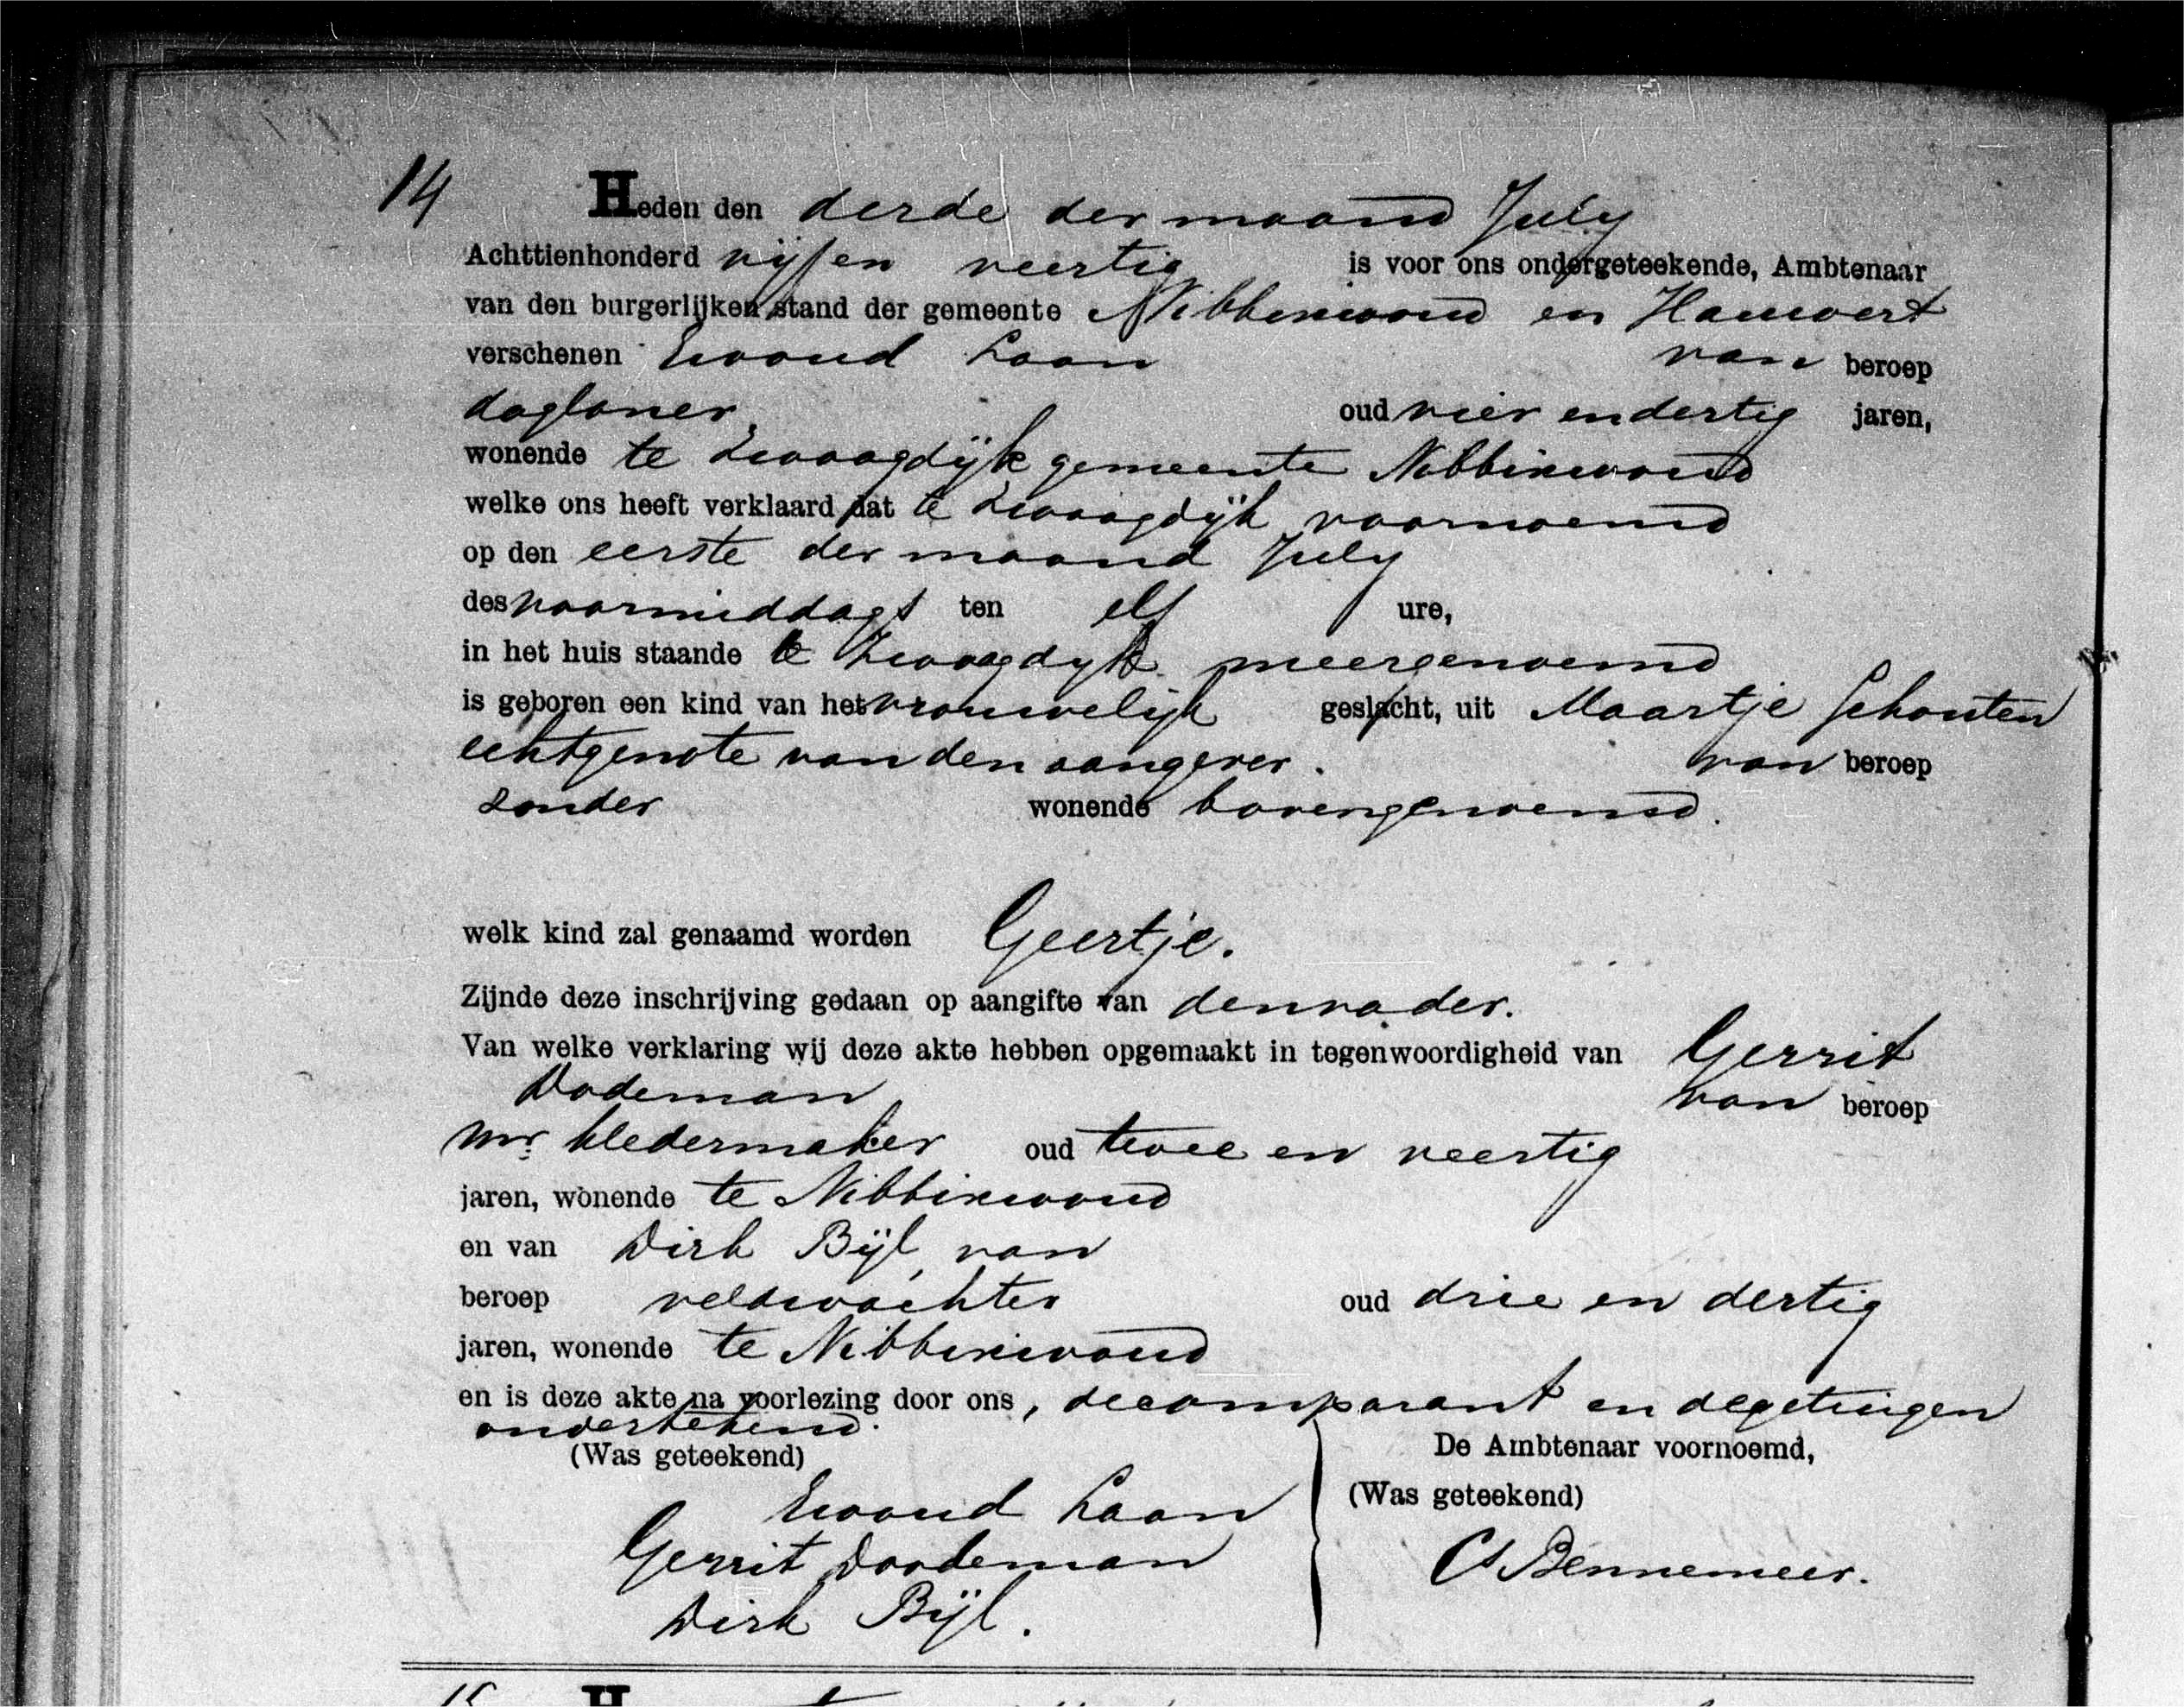 14
Heden den derde der maand July
Achttienhonderd vijf en veertig is voor ons ondergeteekende, Ambtenaar
van den burgerlijken stand der gemeente Nibbixwoud en Hauwert
verschenen Ewoud Laan van beroep
dagloner, oud vier en dertig jaren,
wonende te Zwaagdijk gemeente Nibbixwoud
welke ons heeft verklaard dat te Zwaagdijk voornoemd
op den eerste der maand July
des voormiddags ten elf ure,
in het huis staande te Zwaagdyk meergenoemd
is geboren een kind van het vrouwelijk geslacht, uit Maartje Schouten
echtgenote van den aangever. van beroep
zonder wonende bovengenoemd.
welk kind zal genaamd worden Geertje.
Zijnde deze inschrijving gedaan op aangifte van den vader.
Van welke verklaring wij deze akte hebben opgemaakt in tegenwoordigheid van Gerrit
Dodeman van beroep
mr kledermaker oud twee en veertig
jaren, wonende te Nibbixwoud
en van Dirk Bijl van
beroep veldwachter oud drie en dertig
jaren, wonende te Nibbixwoud
en is deze akte na voorlezing door ons, de comparant en de getuigen
ondertekend.
(Was geteekend) De Ambtenaar voornoemd,
Ewoud Laan (Was geteekend)
Gerrit Doodeman
Dirk Bijl. Bennemeer.
15 H